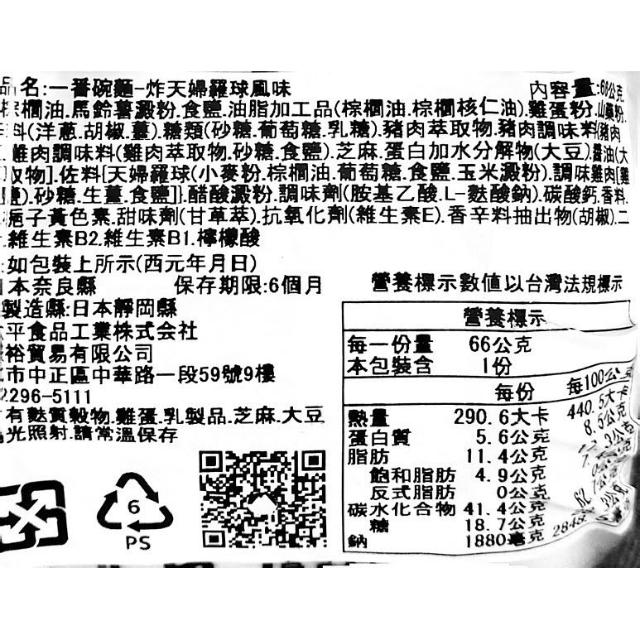 品名:一番碗麵-炸天婦羅球風味
內容量:66公克
棕櫚油.馬鈴薯澱粉.食鹽.油脂加工品(棕櫚油.棕櫚核仁油).雞蛋粉.山藥粉.
料(洋蔥.胡椒.薑).糖類(砂糖.葡萄糖.乳糖).豬肉萃取物.豬肉調味料(豬肉
雞肉調味料(雞肉萃取物.砂糖.食鹽).芝麻.蛋白加水分解物(大豆).醬油(大
取物].佐料[天婦羅球(小麥粉.棕櫚油.葡萄糖.食鹽.玉米澱粉).調味粉(雞
).砂糖.生薑.食鹽]].醋酸澱粉.調味劑(胺基乙酸.L-麩酸鈉).碳酸鈣.香料.
梔子黃色素.甜味劑(甘草萃).抗氧化劑(維生素E).香辛料抽出物(胡椒).二
.維生素B2.維生素B1.檸檬酸
:如包裝上所示(西元年月日)
日本奈良縣
保存期限:6個月
製造縣:日本靜岡縣
太平食品工業株式会社
裕貿易有限公司
市中正區中華路一段59號9樓
2296-5111
有麩質穀物.雞蛋.乳製品.芝麻.大豆
光照射.請常溫保存
6
PS
營養標示數值以台灣法規標示
營養標示
每一份量 66公克
本包裝含 1份
每份 每100公克
熱量 290.6大卡 440.5大卡
蛋白質 5.6公克 8.5公克
脂肪 11.4公克
飽和脂肪 4.9公克
反式脂肪 0公克
碳水化合物 41.4公克
糖 18.7公克
鈉 1880毫克